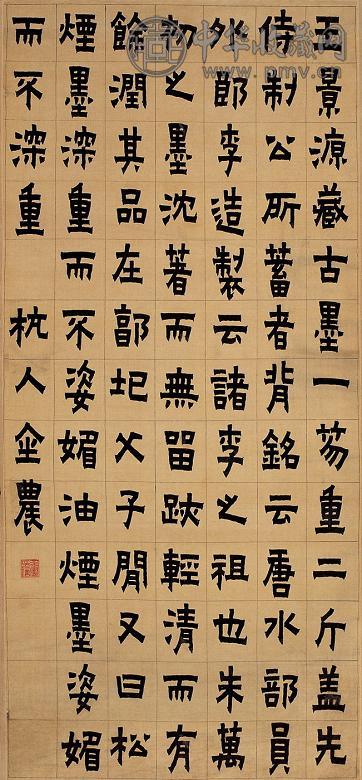 王景源藏古墨一笏重二斤盖先
待制公所蓄者背銘云唐水部員
外郎李造製云諸李之祖也朱萬
初之墨沈著而無留跡輕清而有
餘潤其品在郭圯父子閒又曰松
煙墨深重而不姿媚油煙墨姿媚
而不深重 杭人金農
中华收藏网
www.pmv.cn